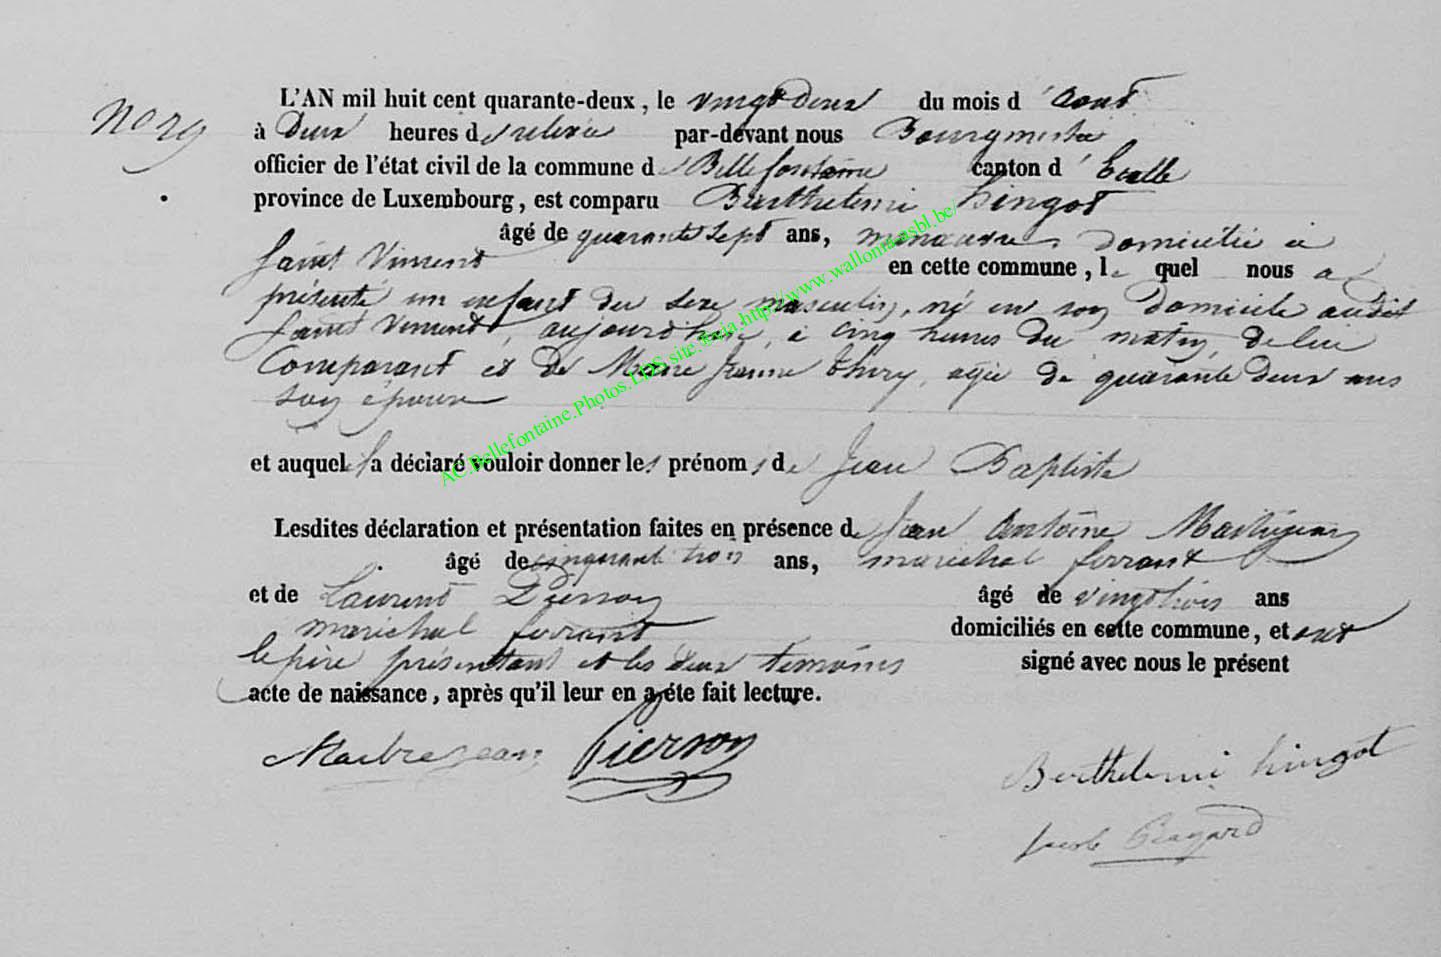 N° 29
L'AN mil huit cent quarante-deux, le vingt deux du mois d'aout
à Deux heures de relevée par-devant nous Bourgmestre
officier de l'état civil de la commune de Bellefontaine canton d'Etalle
province de Luxembourg, est comparu Barthelemi hingot
âgé de quarante sept ans, manœuvre domicilié à
Saint Vincent en cette commune, lequel nous a
présenté un enfant du sexe masculin, né en son domicile audit
Saint Vincent, aujourd'hui, à cinq heures du matin, de lui
Comparant et de Marie Jeanne thiry, agée de quarante deux ans
son épouse
et auquel il a déclaré vouloir donner les prénoms de Jean Baptiste
Lesdites déclaration et présentation faites en présence de Jean Antoine Maitrejean
âgé de cinquante trois ans, marechal ferrant
et de Laurent Pierson âgé de vingt trois ans
marichal ferrant domiciliés en cette commune, et ont
le père présentant et les deux temoins signé avec nous le présent
acte de naissance, après qu'il leur en a été fait lecture.
Pierson
Berthelemi hingot
Jacob
AC.Bellefontaine.Photos.LDS.site.Luja.http://www.wallonia.asbl.be/